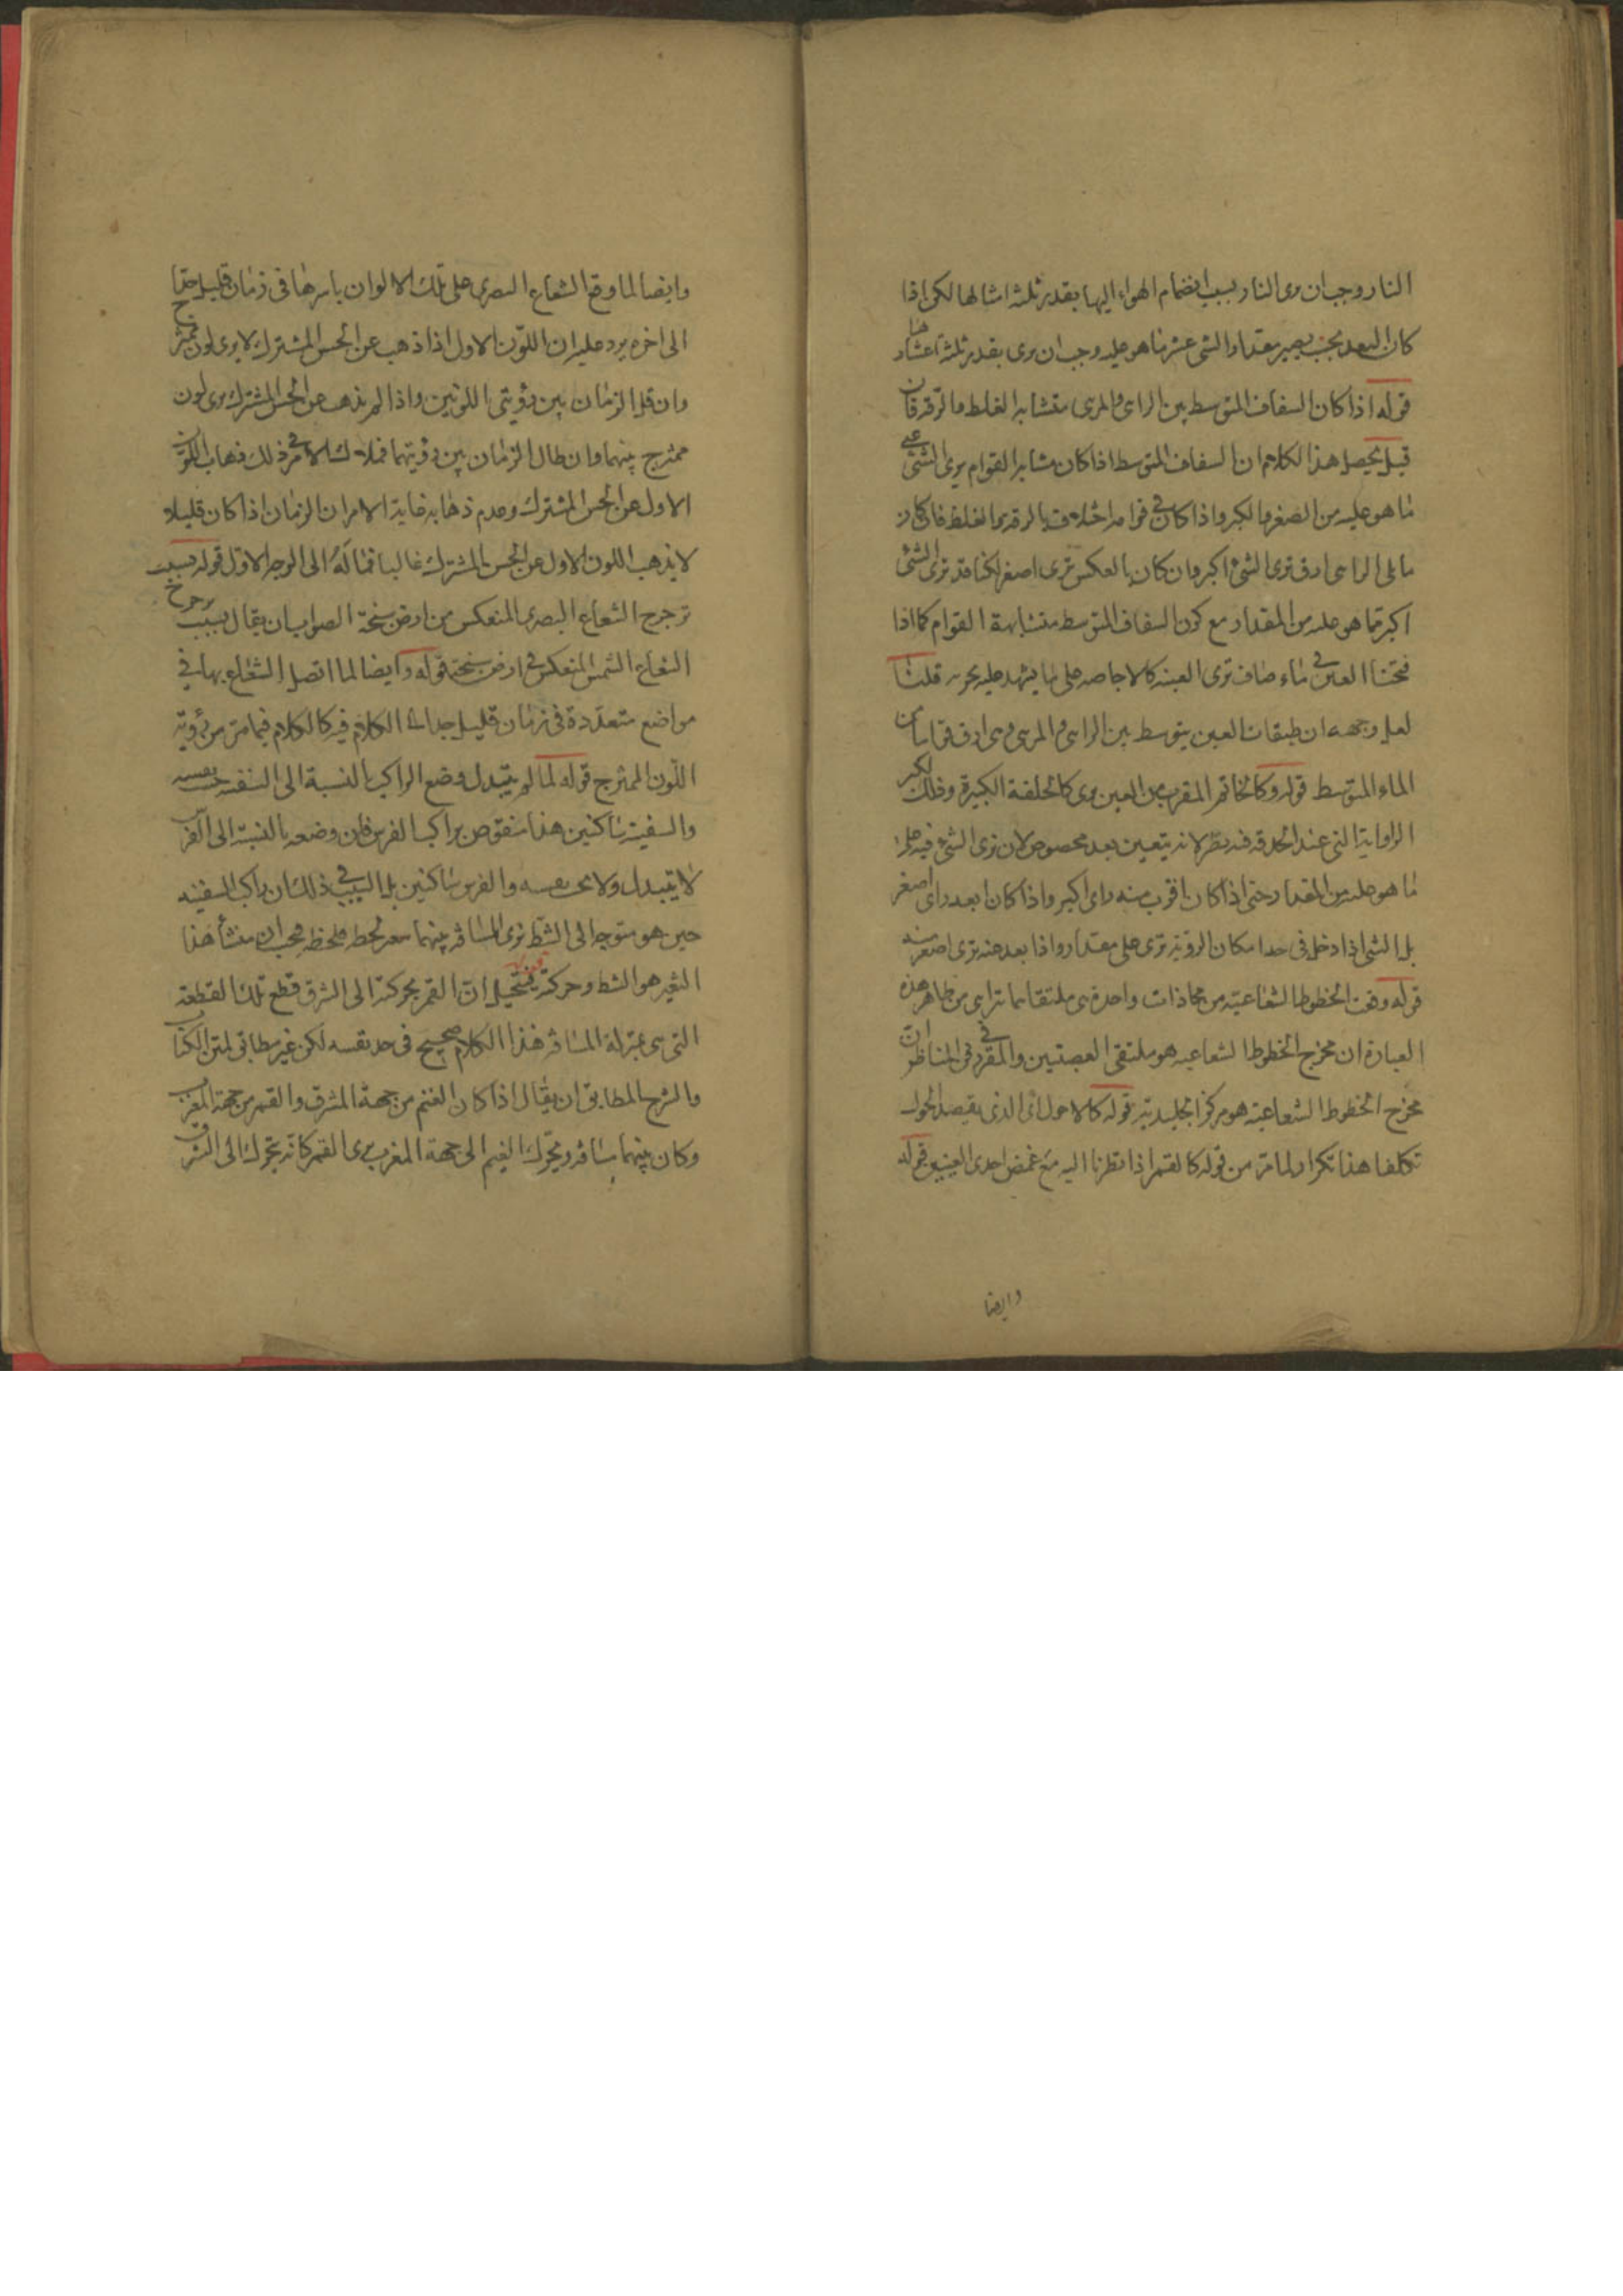 النار وجب ان يرى النار بسبب انضمام الهواء اليها بقدر ثلثة امثالها لكن اذا
كان البعد بحيث يصير مقدار الشئ عشر ما هو عليه وجب ان يرى بقدر ثلثة اعشار
قوله اذا كان الشفاف المتوسط بين الرائى والمرئى متشابه الغلظ والرقة فان
قيل يحصل هذا الكلام ان الشفاف المتوسط اذا كان متشابه القوام يرى الشئ على
ما هو عليه من الصغر والكبر واذا كان فى قوامه اختلاف بالرقة والغلظ فان كان
ما يلى الرائى ارق ترى الشئ اكبر وان كان بالعكس ترى اصغر لكنا قد نرى الشئ
اكبر مما هو عليه من المقدار مع كون الشفاف المتوسط متشابهة القوام كما اذا
فتحنا العين فى ماء صاف ترى العنبة كالاجاصة على ما يشهد عليه تجربه قلنا
لعل وجهه ان طبقات العين يتوسط بين الرائى والمرئى وهى ارق قواما من
الماء المتوسط قوله وكالخاتم المقرب من العين يرى كالحلقة الكبيرة وذلك لكبر
الزاوية التى عند الحدقة فيه نظر لانه يتعين بعد مخصوص لان نرى الشئ فيه على
ما هو عليه من المقدار حتى اذا كان اقرب منه راى اكبر واذا كان ابعد راى اصغر
بل الشئ اذا دخل فى حد امكان الرؤية ترى على مقدار واذا بعد عنه ترى اصغر منه
قوله وقعت الخطوط الشعاعية من محاذات واحدة هى ملتقاهما تراى من ظاهر هذه
العبارة ان مخرج الخطوط الشعاعية هو ملتقى العصبتين والمقرر فى المناظر ان
مخرج الخطوط الشعاعية هو مركز الجليدية قوله كالاحول اى الذى يقصد الحول
تكلفا هذا تكرار لما مر من قوله كالقمر اذا نظرنا اليه مع غمض احدى العينين قوله
وايضا
وايضا لما وقع الشعاع البصرى على تلك الالوان باسرها فى زمان قليل جدا
الى اخره يرد عليه ان اللون الاول اذا ذهب عن الحس المشترك لا يرى لون ممتزج
وان قل الزمان بين رؤيتى اللونين واذا لم يذهب عن الحس المشترك يرى لون
ممتزج بينهما وان طال الزمان بين رؤيتهما فملاك الامر فى ذلك ذهاب اللون
الاول عن الحس المشترك وعدم ذهابه غاية الامر ان الزمان اذا كان قليلا
لا يذهب اللون الاول عن الحس المشترك غالبا فماله الى الوجه الاول قوله بسبب
ترجرج الشعاع البصرى المنعكس من ارض سبخة الصواب ان يقال بسبب ترجرج
الشعاع الشمس المنعكس فى ارض سبخة قوله وايضا لما اتصل الشعاع بها فى
مواضع متعددة فى زمان قليل جدا الكلام فيه كالكلام فيما مر من رؤية
اللون الممتزج قوله لما لم يتبدل وضع الراكب بالنسبة الى السفينة حسب نفسه
والسفينة ساكنين هذا منقوض براكب الفرس فان وضعه بالنسبة الى الفرس
لا يتبدل ولا يحس نفسه والفرس ساكنين بل السبب فى ذلك ان راكب السفينة
حين هو متوجه الى الشط نرى المسافة بينهما لحظة فلحظة فيحسب ان منشأ هذا
التغير هو الشط وحركته فيتخيل ان القمر بحركته الى الشرق قطع تلك القطعة
التى هى بمنزلة المسافة فهذا الكلام صحيح فى حد نفسه لكن غير مطابق لمتن الكتاب
والشرح المطابق ان يقال اذا كان الغيم من جهة المشرق والقمر من جهة المغرب
وكان بينهما مسافة ويتحرك الغيم الى جهة المغرب يرى القمر كانه يتحرك الى الشرق